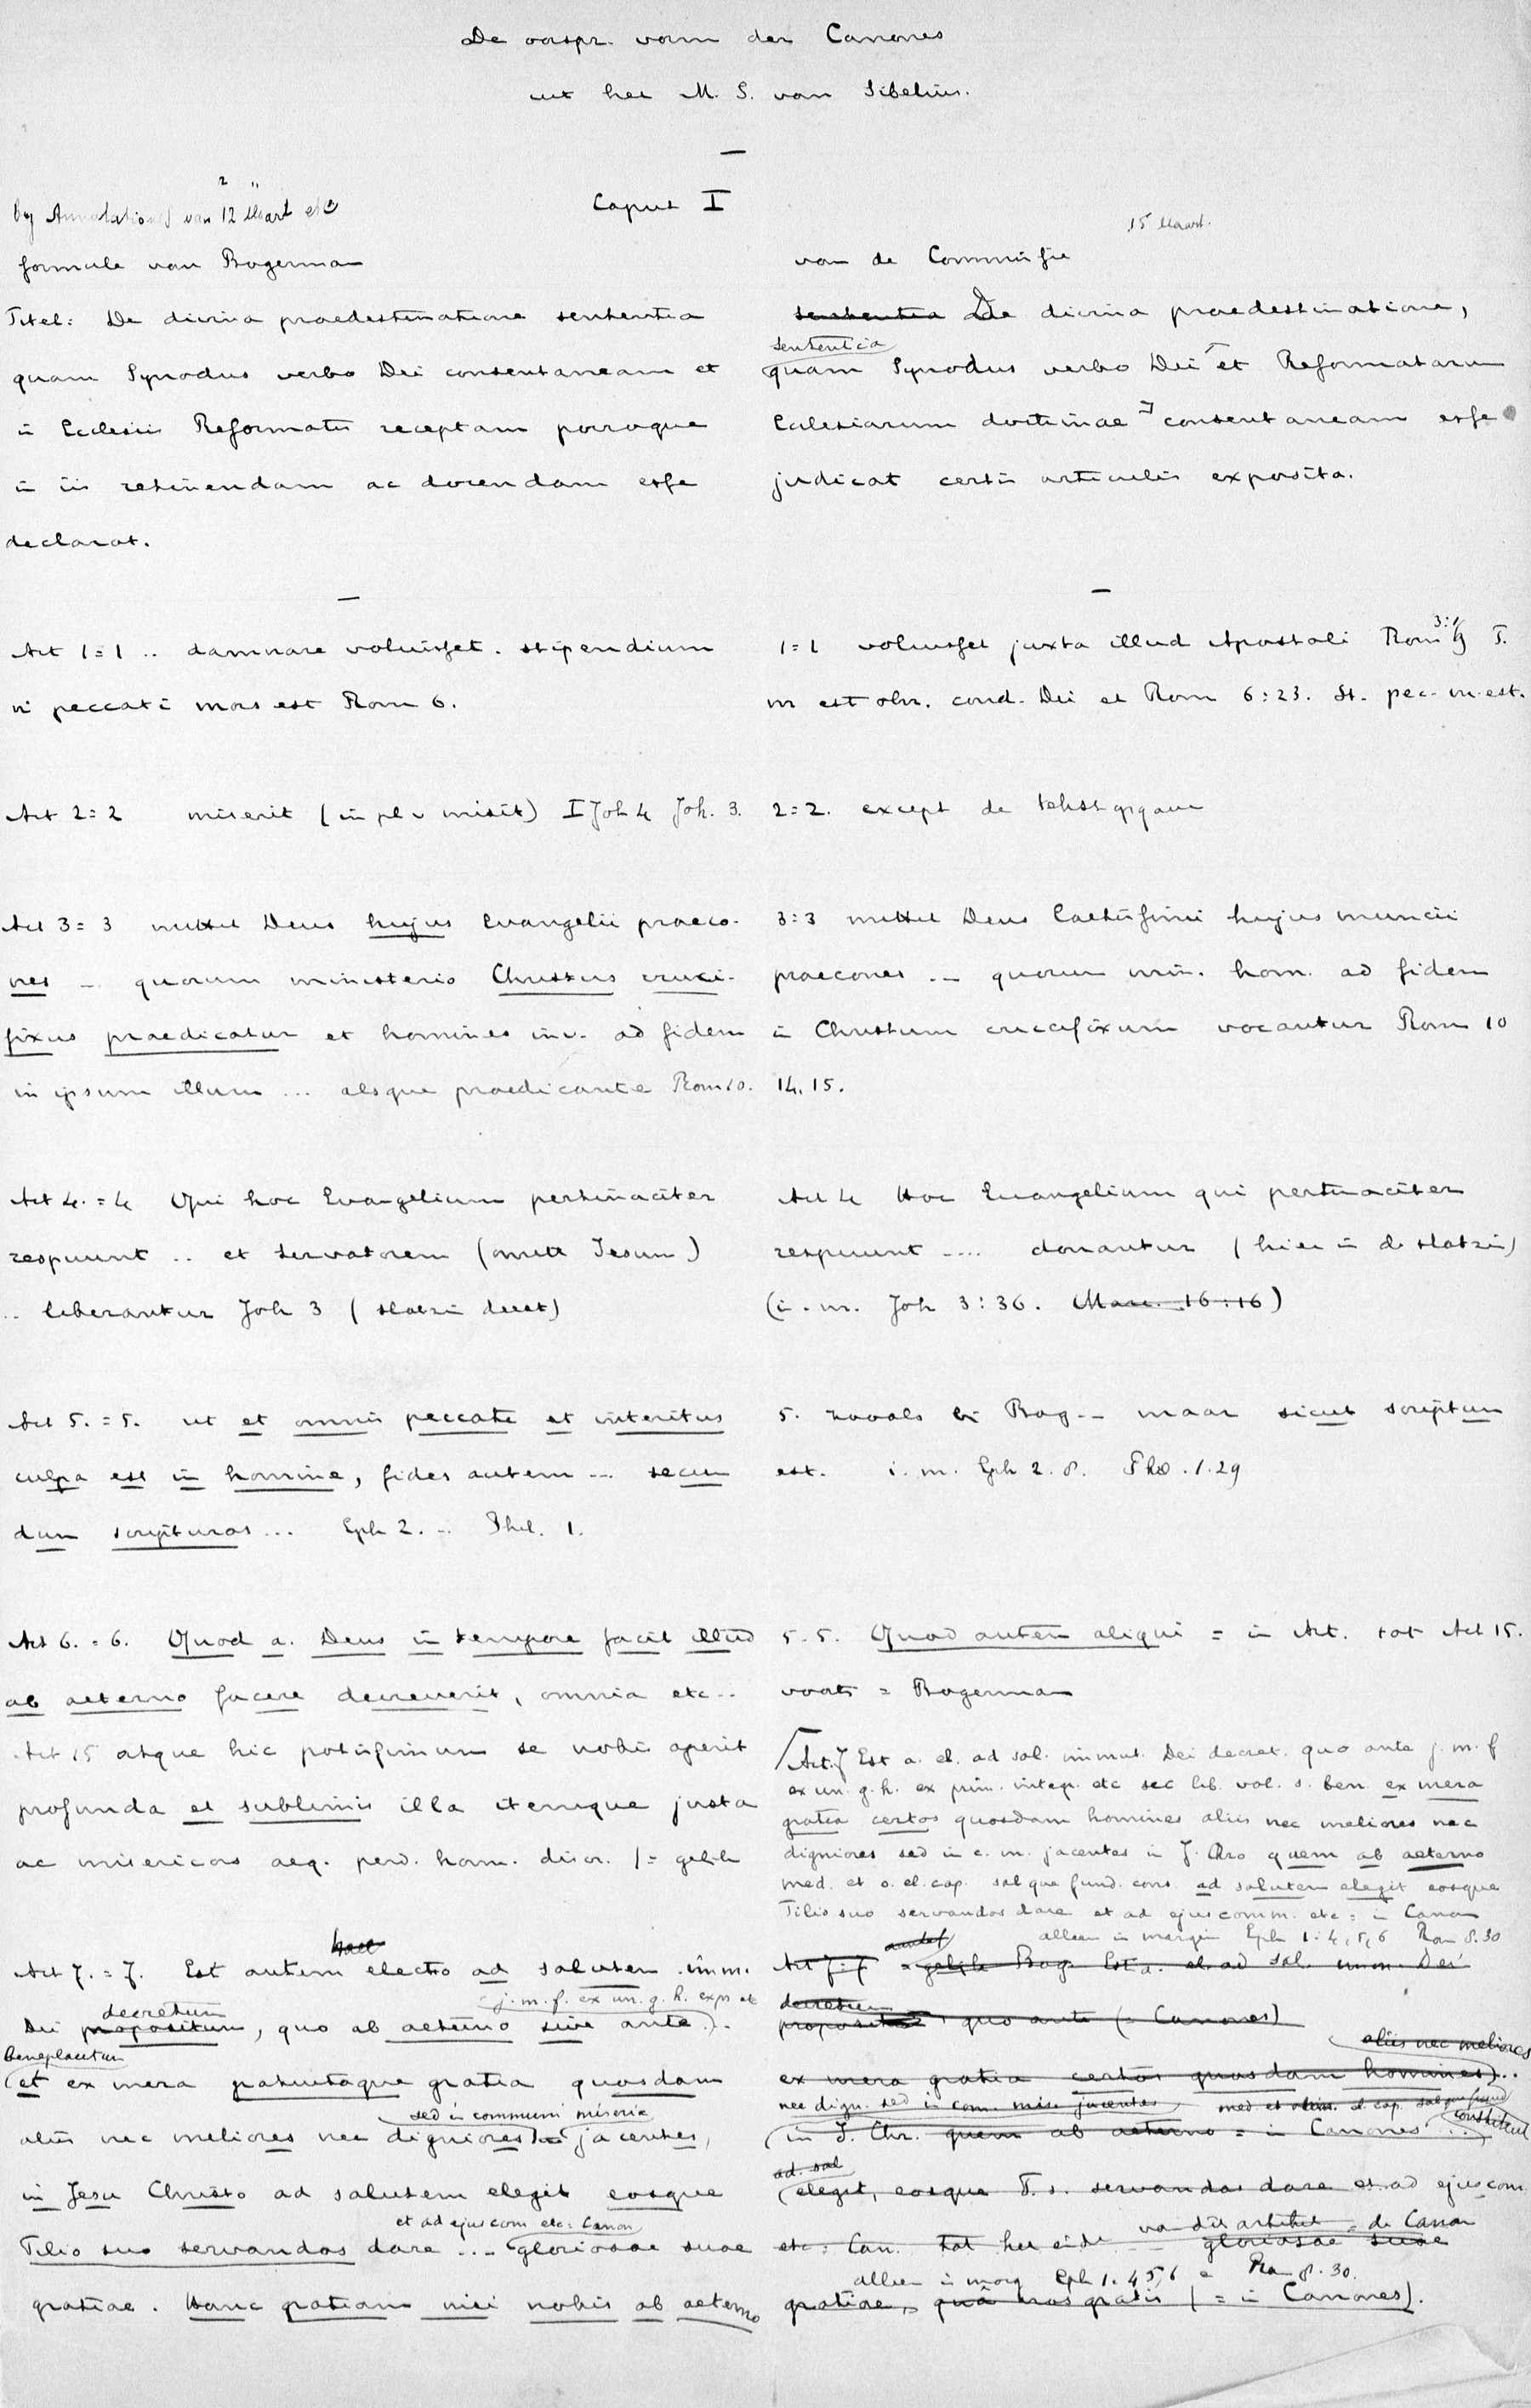 De oorspr. vorm der Canones
uit het M. S. van Sibelius.
Caput I
by Annotationes van 12 Maart
formule van Bogerman
Titel: De divina praedestinatione sententia
quam Synodus verbo Dei consentaneam et
in Ecclesiis Reformatis receptam porroque
in iis retinendam ac docendam esse
declarat.
Art 1=1 .. damnare voluisset. stipendium
peccati mors est Rom 6.
Art 2=2 miserit (in pl v misit) I Joh 4 Joh. 3.
Art 3=3 mittit Deus hujus Evangelii praeco-
nes ... quorum ministerio Christus cruci-
fixus praedicatur et homines inv. ad fidem
in ipsum illum ... absque praedicante Rom 10.
Art 4.=4 Qui hoc Evangelium pertinaciter
respuunt .. et servatorem (omitt Jesum)
.. liberantur Joh 3 (slotzin deest)
Art 5.=5. ut et omnis peccati et interitus
culpa est in homine, fides autem ... secun
dum scripturas ... Eph 2. .. Phil. 1.
Art 6.=6. Quod a. Deus in tempore facit illud
ab aeterno facere decreverit, omnia etc..
Art 15 atque hic potissimum se nobis aperit
profunda et sublimis illa itemque justa
ac misericors aeq. perd. hom. discr.
Art 7.=7. Est autem electio ad salutem imm.
j. m. f. ex un. g. h. exps etc
decretum
Dei propositum, quo ab aeterno sive ante
beneplacitum
et ex mera gratuitaque gratia quosdam
sed in communi miseria
aliis nec meliores nec digniores jacentes,
in Jesu Christo ad salutem elegit eosque
et ad ejus com etc = Canon
Filio suo servandos dare ... gloriosae suae
gratiae. Hanc gratiam nisi nobis ab aeterno
15 Maart.
van de Commissie
sententia De divina praedestinatione,
sententia
quam Synodus verbo Dei et Reformatarum
Ecclesiarum doctrinae consentaneam esse
judicat certis articulis exposita.
1=1 voluisset juxta illud Apostoli Rom
m est obn. cond. Dei et Rom 6:23. St. pec. m. est.
2=2. except de
3=3 mittit Deus laetissimi hujus nuncii
praecones ... quorum min. hom. ad fidem
in Christum crucifixum vocantur Rom 10
14, 15.
Art 4 Hoc Evangelium qui pertinaciter
respuunt .... donantur (hier in de slotzin)
(i. m. Joh 3:36. Marc. 16:16)
5. zooals bi Bog... maar sicut scriptum
est. i. m. Eph 2.8. Phil. 1.29
5.5. Quod autem aliqui = in Art. tot Art 15.
voorts = Bogerman
Art. 7 Est a. el. ad sal. immut. Dei decret. quo ante j. m. f
ex un. g. h. ex prim. integr. etc sec lib. vol. s. ben. ex mera
gratia certos quosdam homines aliis nec meliores nec
digniores sed in c. m. jacentes in J. Chro quem ab aeterno
med. et o. el. cap. sal que fund. cons. ad salutem elegit eosque
Filio suo servandos dare et ad ejus comm. etc = in Canon
alleen in margin Eph 1:4,5,6 Rom 8.30
Art 7=7 Bog. Est a. el. ad sal. imm. Dei
decretum
propositum quo ante (= Canones)
aliis nec meliores
ex mera gratia certos quosdam homines)..
nec dign. sed in com. mise jacentes med et el cap. salque fund
constituit
(in J. Chr. quem ab aeterno = in Canones ..
ad. sal
(elegit, eosque F. s. servandos dare et ad ejus com
van dit artikel = de Canon
etc = Can. tot het einde gloriosae suae
alleen in marg Eph 1.4 5,6 Rom 8.30.
gratiae, qua nos gratis (= in Canones).